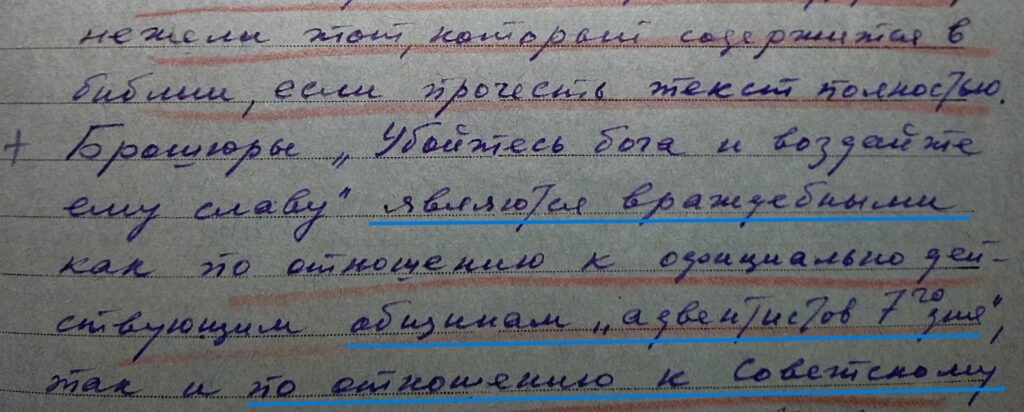 нежели тот, который содержится в
библии, если прочесть текст полностью.
+ Брошюры „Убойтесь бога и воздайте
ему славу" являются враждебными
как по отношению к официально дей-
ствующим общинам „адвентистов 7го дня",
так и по отношению к Советскому